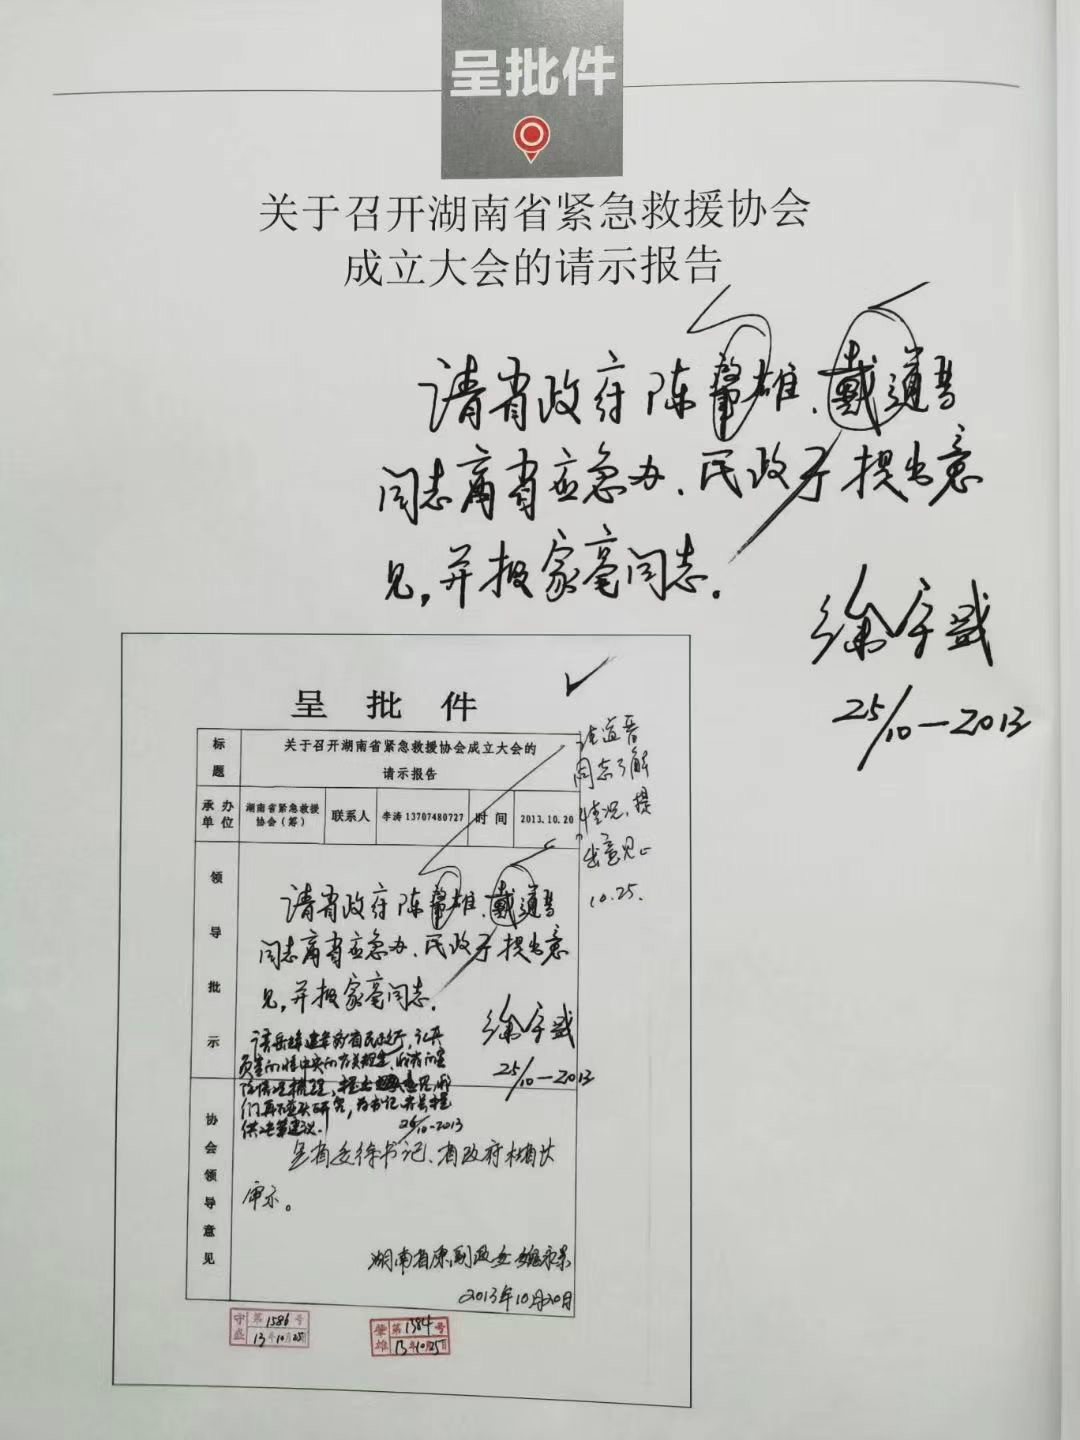 呈批件
关于召开湖南省紧急救援协会
成立大会的请示报告
请省政府陈肇雄、戴道晋
同志商省应急办、民政厅提出意
见，并报家毫同志。
徐守盛
25/10-2013
呈批件
标题
关于召开湖南省紧急救援协会成立大会的
请示报告
承办单位
湖南省紧急救援
协会（筹）
联系人
李涛 13707480727
时间
2013.10.20
道晋
同志了解
情况，提
出意见
10.25.
领导批示
请省政府陈肇雄、戴道晋
同志商省应急办、民政厅提出意
见，并报家毫同志。
徐守盛
25/10-2013
25/10-2013
协会领导意见
呈省委徐书记、省政府杜省长
审示。
湖南省原副
2013年10月20日
守盛
第1586号
13年10月25日
肇雄
第1384号
13年10月25日